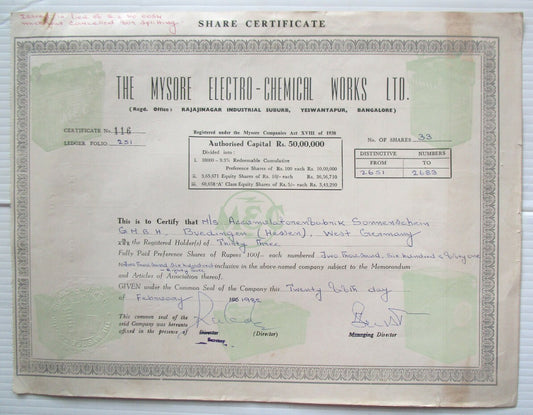 Issued in lieu of S.C. No 0054
which got cancelled for splitting
SHARE CERTIFICATE
THE MYSORE ELECTRO-CHEMICAL WORKS LTD.
(Regd. Office: RAJAJINAGAR INDUSTRIAL SUBURB, YESWANTAPUR, BANGALORE)
CERTIFICATE No. 116
LEDGER FOLIO 251
Registered under the Mysore Companies Act XVIII of 1938
Authorised Capital Rs. 50,00,000
Divided into:
i. 10000 - 9.3% Redeemable Cumulative
Preference Shares of Rs. 100 each Rs. 10,00,000
ii. 3,65,671 Equity Shares of Rs. 10/- each Rs. 36,56,710
iii. 68,658 'A' Class Equity Shares of Rs. 5/- each Rs. 3,43,290
No. OF SHARES 33
DISTINCTIVE NUMBERS
FROM TO
2651 2683
This is to Certify that M/s Accumulatorenfabrik Sonnenschein
G.M.B.H., Buedingen (Hessen), West Germany
the Registered Holder(s) of Thirty Three
Fully Paid Preference Shares of Rupees 100/- each numbered Two thousand, six hundred & fifty one
to Two thousand six hundred inclusive in the above named company subject to the Memorandum
& eighty three
and Articles of Association thereof.
GIVEN under the Common Seal of the Company this Twenty fifth day
of February 1982
The common seal of the
said Company was hereunto
affixed in the presence of
Director
Secretary
(Director)
Managing Director